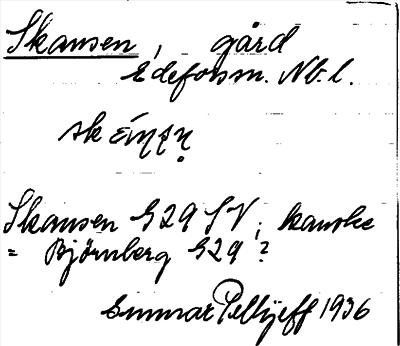 Skansen, gård
Edeforsm. Nb. l.
Skansen G29 SV; kanske
= Björnberg G29?
Gunnar Pellijeff 1936